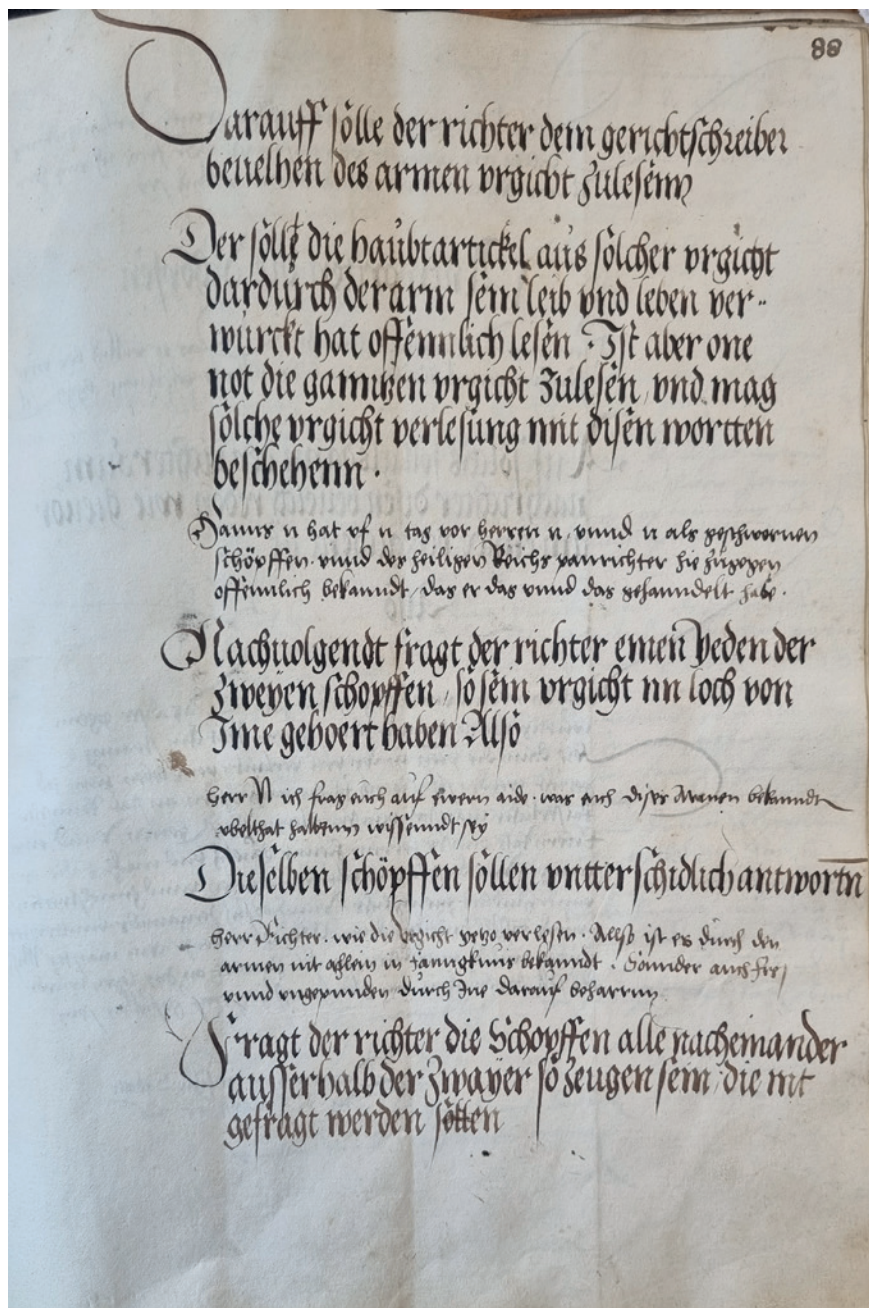 88
Darauff sölle der richter dem gerichtschreiber
beuelhen des armen vrgicht zulesenn
Der sölle die haubtartickel aus sölcher vrgicht
dardurch der arm sein leib vnd leben ver-
würckt hat offennlich lesen · Ist aber one
not die ganntzen vrgicht zulesen vnd mag
sölche vrgicht verlesung mit disen wortten
beschehenn ·
Hanns n hat vf n tag vor herren n vnnd n als geschwornen
schöpffen vnnd des heiligen Reichs panrichter hie zugegen
offennlich bekanndt / das er das vnnd das gehanndelt habe ·
Nachuolgendt fragt der richter einen Yeden der
zweyen schopffen / so sein vrgicht im loch von
Ime gehoert haben Allso
herr N ich frag euch auf ewern aide · was euch dises Armen bekanndt
vbelthat halbenn wissenndt sey
Dieselben schöpffen söllen vntterschidlich antwortn
herr Richter · wie die vrgicht yetzo verlesen · Allso ist es durch den
armen nit allein in fanngknus bekanndt · Sonnder auch frey
vnnd vngepunden durch Ine darauf beharrnn
Fragt der richter die Schopffen alle nacheinander
ausserhalb der Zwayer so zeugen sein die nit
gefragt werden sollen